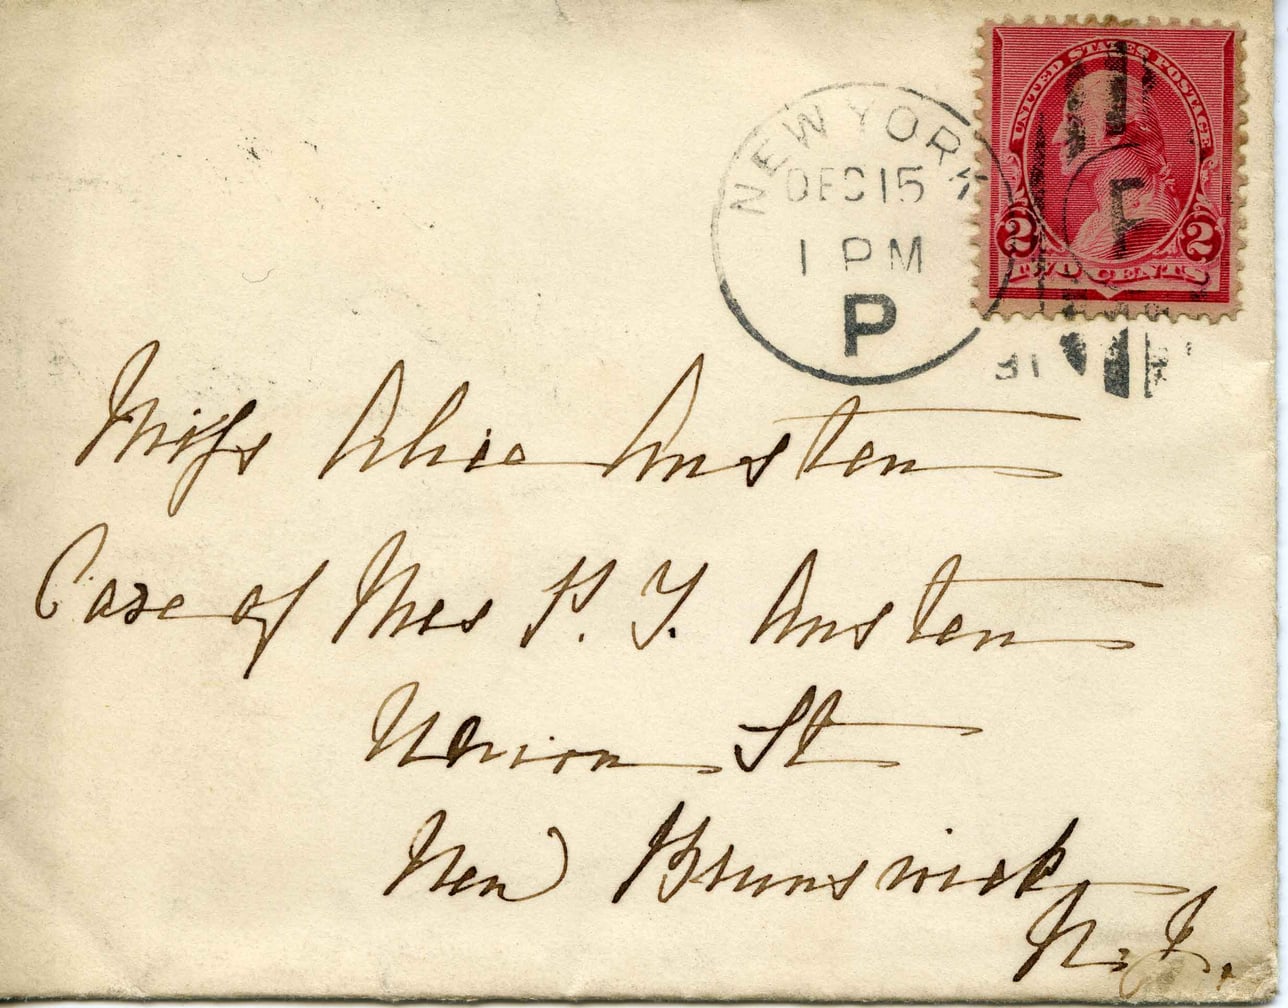 UNITED STATES POSTAGE
2 2
TWO CENTS
NEW YORK
DEC 15
1 PM
P
F
Miss Alice Austen
Care of Mrs P. T. Austen
Union St
New Brunswick
N. J.